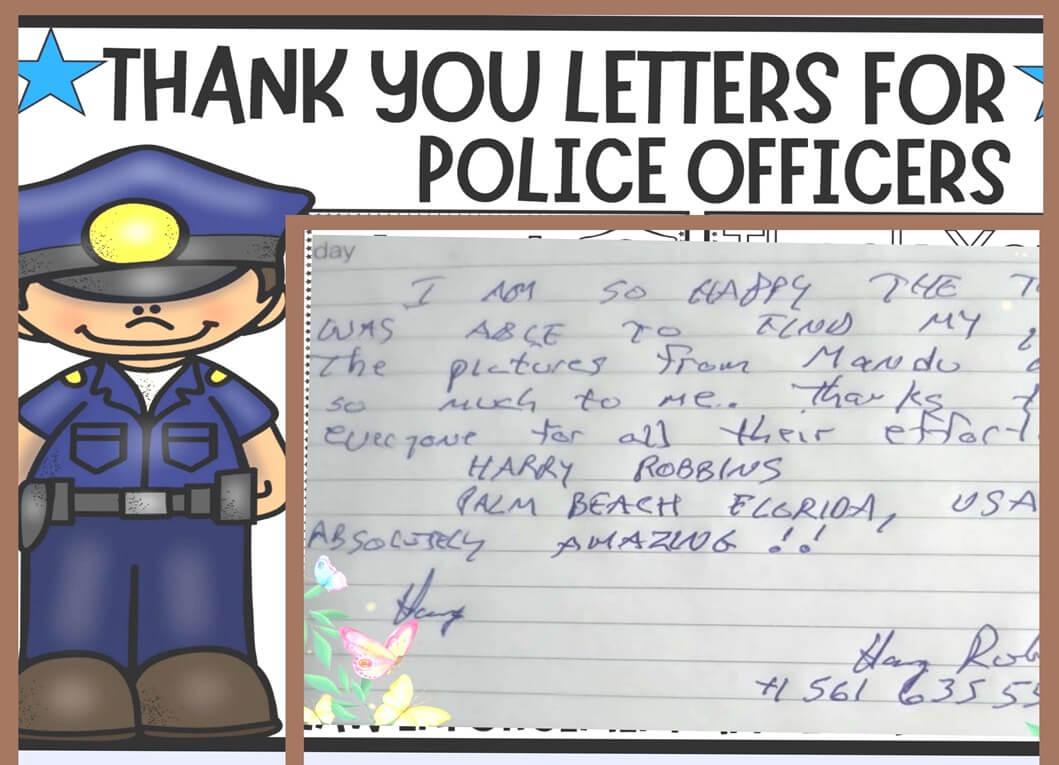 THANK YOU LETTERS FOR
POLICE OFFICERS
day
I AM SO HAPPY THE
WAS ABLE TO FIND MY
The pictures from Mandu
so much to me.. Thanks
everyone for all their effort
HARRY ROBBINS
PALM BEACH FLORIDA, USA
ABSOLUTELY AMAZING !!
Harry
Harry Rob
+1 561 635 55